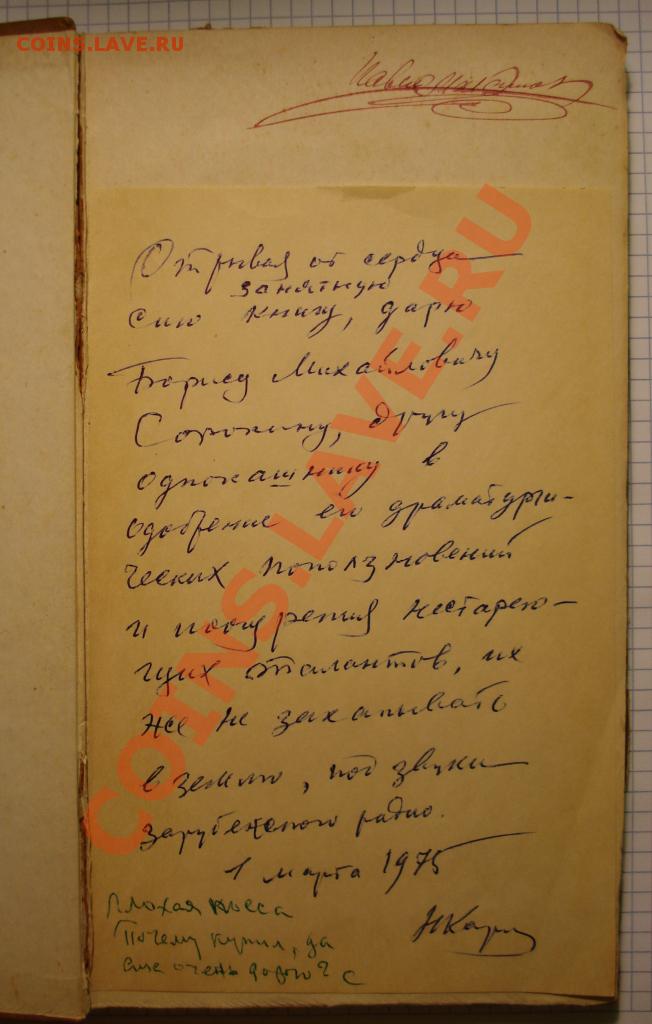 COINS.LAVE.RU
Отрывая от сердца
занятную
сию книгу, дарю
Борису Михайловичу
Сорокину, другу
однокашнику в
одобрение его драматурги-
ческих поползновений
и поощрения нестарею-
щих талантов, их
же не закапывать
в землю, под звуки
зарубежного радио.
1 марта 1975
Плохая пьеса
Почему купил, да
еще очень дорого? С
COINS.LAVE.RU